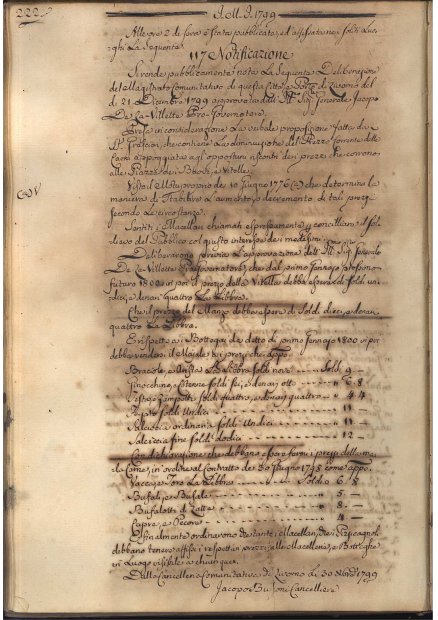 222
I. Off. I. 1799
Alle ore 2 di sera è stata pubblicata, ed affissata nei soliti Luo-
ghi La Seguente
117 Notificazione
Si rende pubblicamente nota La Seguente Deliberazione
del Magistrato Comunitativo di questa Città, e Porto di Livorno del
di 21 Dicembre 1799 approvata dall' Ill. Sig. Generale Jacopo
De La-Villette Pro-Governatore.
Presa in considerazione La verbale proposizione fatta da
che contiene La diminuzione del Prezzo corrente delle
Carni appoggiata agl' opportuni riscontri dei prezzi che corrono
alle Piazze dei Bovi, e Vitelle.
Visto il Motuproprio de 10 Giugno 1776 che determina la
maniera di stabilire L'aumento, o decremento di tali prezzi
secondo Le circostanze.
Sentiti i Macellari chiamati espressamente, e conciliato il sol-
lievo del Pubblico col giusto interesse dei medesimi
Deliberarono previa L'approvazione dell' Ill. Sig. Generale
De La-Villette Pro-Governatore, che dal primo Gennajo prossimo
futuro 1800 in poi il prezzo della Vitella debba essere di soldi un-
dici, e denari quattro La Libbra.
Che il prezzo del Manzo debba essere di Soldi dieci, e denari
quattro La Libbra.
E rispetto ai Bottegai da detto dì primo Gennajo 1800 in poi
debba vendersi il Majale ai prezzi che appo
Braciole, e Arista La Libbra soldi nove ... Soldi 9 -
Finocchino, e Sterne soldi sei, e denari otto ... 6 8
Testa, e Zampetti soldi quattro, e denari quattro ... 4 4
soldi Undici ... 11 -
Salciccia ordinaria soldi Undici ... 11 -
Salciccia fine soldi dodici ... 12 -
Con dichiarazione che debbano essere fermi i prezzi dell'altra
Carne, in ordine al Contratto de 30 Giugno 1798 come appo.
Vacca, e Toro La Libbra ... Soldi 6 8
Bufali, e Bufale ... 5 -
Bufalotti di Latte ... 8 -
Capre, e Pecore ... 4 -
E finalmente ordinarono che tanto i Macellari, che i Pizzicagnoli
debbano tenere affissi i respettivi prezzi alle Macellerie, e Botteghe
in Luogo visibile a chiunque.
Dalla Cancelleria Comunitativa di Livorno li 30 1799
Jacopo Cancelliere